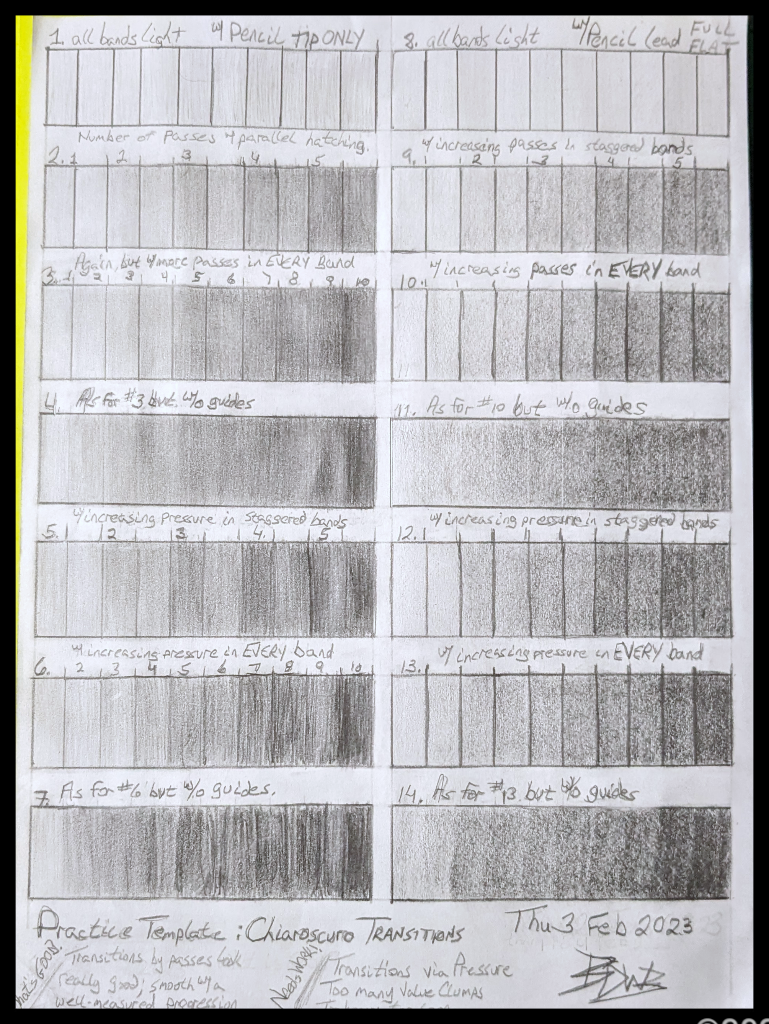 1. all bands light w/ Pencil TIP ONLY
Number of Passes w/ parallel hatching.
2. 1 2 3 4 5
Again, but w/ more passes in EVERY Band
3. 1 2 3 4 5 6 7 8 9 10
4. As for #3 but w/o guides
w/ increasing pressure in staggered bands
5. 1 2 3 4 5
w/ increasing pressure in EVERY band
6. 1 2 3 4 5 6 7 8 9 10
7. As for #6 but w/o guides.
8. all bands light w/ Pencil lead FULL FLAT
w/ increasing passes in staggered bands
9. 1 2 3 4 5
10. w/ increasing passes in EVERY band
11. As for #10 but w/o guides
w/ increasing pressure in staggered bands
12.
13. w/ increasing pressure in EVERY band
14. As for #13 but w/o guides
Practice Template: Chiaroscuro TRANSITIONS Thu 3 Feb 2023
What's GOOD?
Transitions by passes look
really good; smooth w/ a
well-measured progression
Needs WORK?
Transitions via Pressure
Too many Value Clumps